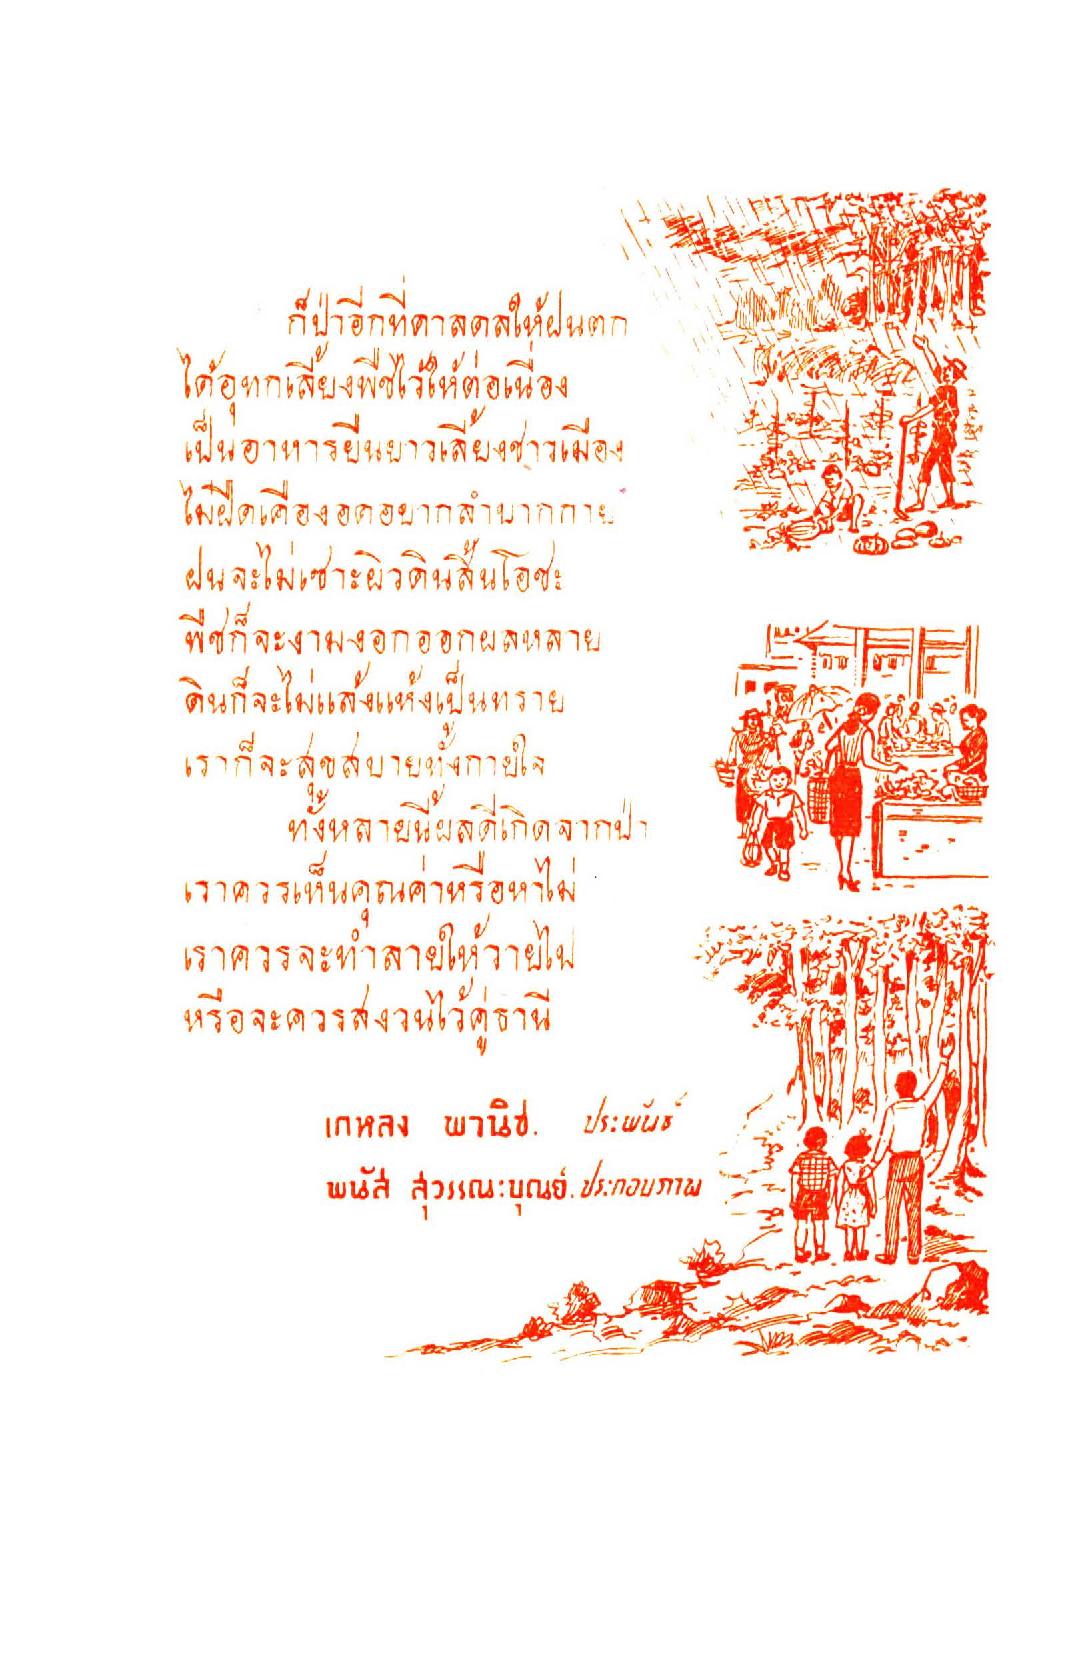 ก็ป่าอีกที่ดาลดลให้ฝนตก
ได้อุทกเลี้ยงพืชไว้ให้ต่อเนื่อง
เป็นอาหารยืนยาวเลี้ยงชาวเมือง
ไม่ฝืดเคืองอดอยากลำบากกาย
ฝนจะไม่เซาะผิวดินสิ้นโอชะ
พืชก็จะงามงอกออกผลหลาย
ดินก็จะไม่แล้งแห้งเป็นทราย
เราก็จะสุขสบายทั้งกายใจ
ทั้งหลายนี้ผลดีเกิดจากป่า
เราควรเห็นคุณค่าหรือหาไม่
เราควรจะทำลายให้วายไป
หรือจะควรสงวนไว้คู่ธานี
เกหลง พานิช. ประพันธ์
พนัส สุวรรณะบุณย์. ประกอบภาพ